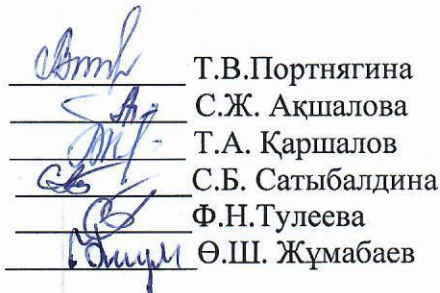 Т.В.Портнягина
С.Ж. Ақшалова
Т.А. Қаршалов
С.Б. Сатыбалдина
Ф.Н.Тулеева
Ө.Ш. Жұмабаев